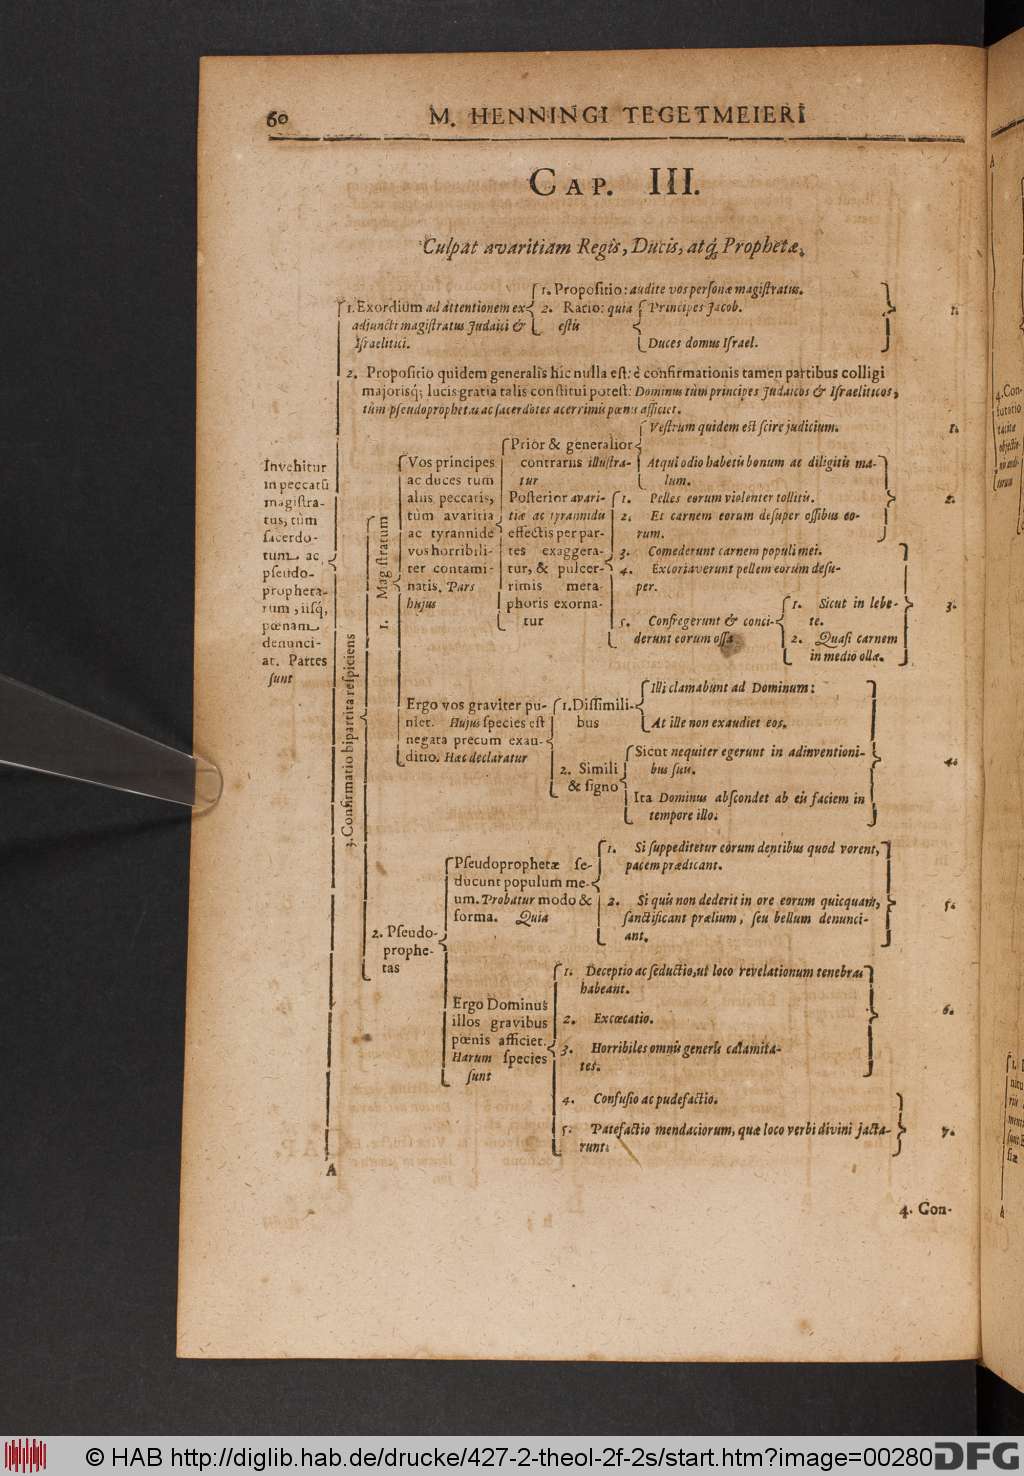 60
M. HENNINGI TEGETMEIERI
CAP. III.
Culpat avaritiam Regis, Ducis, atq́; Prophetæ.
Invehitur
in peccatũ
magiſtra-
tus, tùm
ſacerdo-
tum ac
pſeudo-
propheta-
rum, iiſq́;
pœnam
denunci-
at. Partes
ſunt
1. Exordium ad attentionem ex
adjuncti magiſtratus Judaici &
Iſraelitici.
1. Propoſitio: audite vos perſonæ magiſtratus.
2. Ratio: quia
eſtis
Principes Jacob.
Duces domus Iſrael.
1.
2. Propoſitio quidem generalis hîc nulla eſt: è confirmationis tamen partibus colligi
majorisq́; lucis gratia talis conſtitui poteſt: Dominus tùm principes Judaicos & Iſraeliticos,
tùm pſeudoprophetas ac ſacerdotes acerrimis pœnis afficiet.
3. Confirmatio bipartita reſpiciens
1. Magiſtratum
Vos principes
ac duces tum
aliis peccatis,
tùm avaritia
ac tyrannide
vos horribili-
ter contami-
natis. Pars
hujus
Prior & generalior
contrariis illuſtra-
tur
Veſtrum quidem eſt ſcire judicium.
Atqui odio habetis bonum ac diligitis ma-
lum.
1.
Poſterior avari-
tiæ ac tyrannidis
effectis per par-
tes exaggera-
tur, & pulcer-
rimis meta-
phoris exorna-
tur
1. Pelles eorum violenter tollitis.
2. Et carnem eorum deſuper oſſibus eo-
rum.
2.
3. Comederunt carnem populi mei.
4. Excoriaverunt pellem eorum deſu-
per.
5. Confregerunt & conci-
derunt eorum oſſa
1. Sicut in lebe-
te.
2. Quaſi carnem
in medio ollæ.
3.
Ergo vos graviter pu-
niet. Hujus ſpecies eſt
negata precum exau-
ditio. Hæc declaratur
1. Diſſimili-
bus
Illi clamabunt ad Dominum:
At ille non exaudiet eos.
2. Simili
& ſigno
Sicut nequiter egerunt in adinventioni-
bus ſuis.
Ita Dominus abſcondet ab eis faciem in
tempore illo.
4.
2. Pſeudo-
prophe-
tas
Pſeudoprophetæ ſe-
ducunt populum me-
um. Probatur modo &
forma. Quia
1. Si ſuppeditetur eorum dentibus quod vorent,
pacem prædicant.
2. Si quis non dederit in ore eorum quicquam,
ſanctificant prælium, ſeu bellum denunci-
ant.
5.
Ergo Dominus
illos gravibus
pœnis afficiet.
Harum ſpecies
ſunt
1. Deceptio ac ſeductio, ut loco revelationum tenebras
habeant.
2. Excœcatio.
3. Horribiles omnis generis calamita-
tes.
6.
4. Confuſio ac pudefactio.
5. Patefactio mendaciorum, quæ loco verbi divini jacta-
runt.
7.
A
4. Con-
A
4. Con-
futatio
tacitæ
objectio-
A
© HAB http://diglib.hab.de/drucke/427-2-theol-2f-2s/start.htm?image=00280
DFG